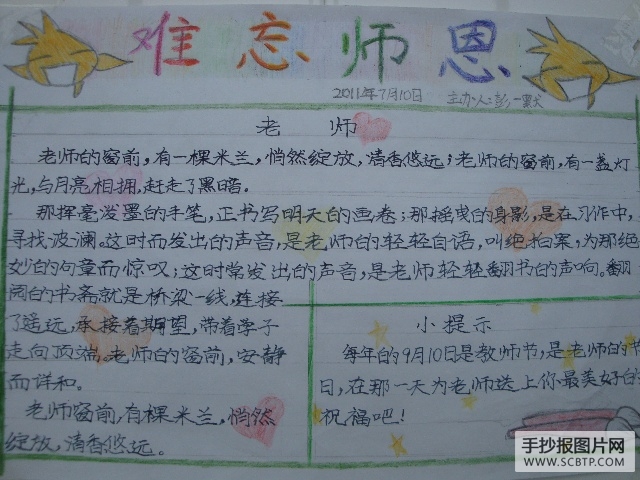 难忘师恩
2011年7月10日 主办人:彭一默
老 师
老师的窗前,有一棵米兰,悄然绽放,清香悠远;老师的窗前,有一盏灯
光,与月亮相拥,赶走了黑暗。
那挥毫泼墨的手笔,正书写明天的画卷;那摇曳的身影,是在习作中,
寻找波澜。这时而发出的声音,是老师的轻轻自语,叫绝拍案,为那绝
妙的句章而惊叹;这时常发出的声音,是老师轻轻翻书的声响。翻
阅的书斋就是桥梁一线,连接
了遥远,承接着期望,带着学子
走向顶端。老师的窗前,安静
而详和。
老师窗前,有棵米兰,悄然
绽放,清香悠远。
小提示
每年的9月10日是教师节,是老师的节
日,在那一天为老师送上你最美好的
祝福吧!
手抄报图片网
WWW.SCBTP.COM